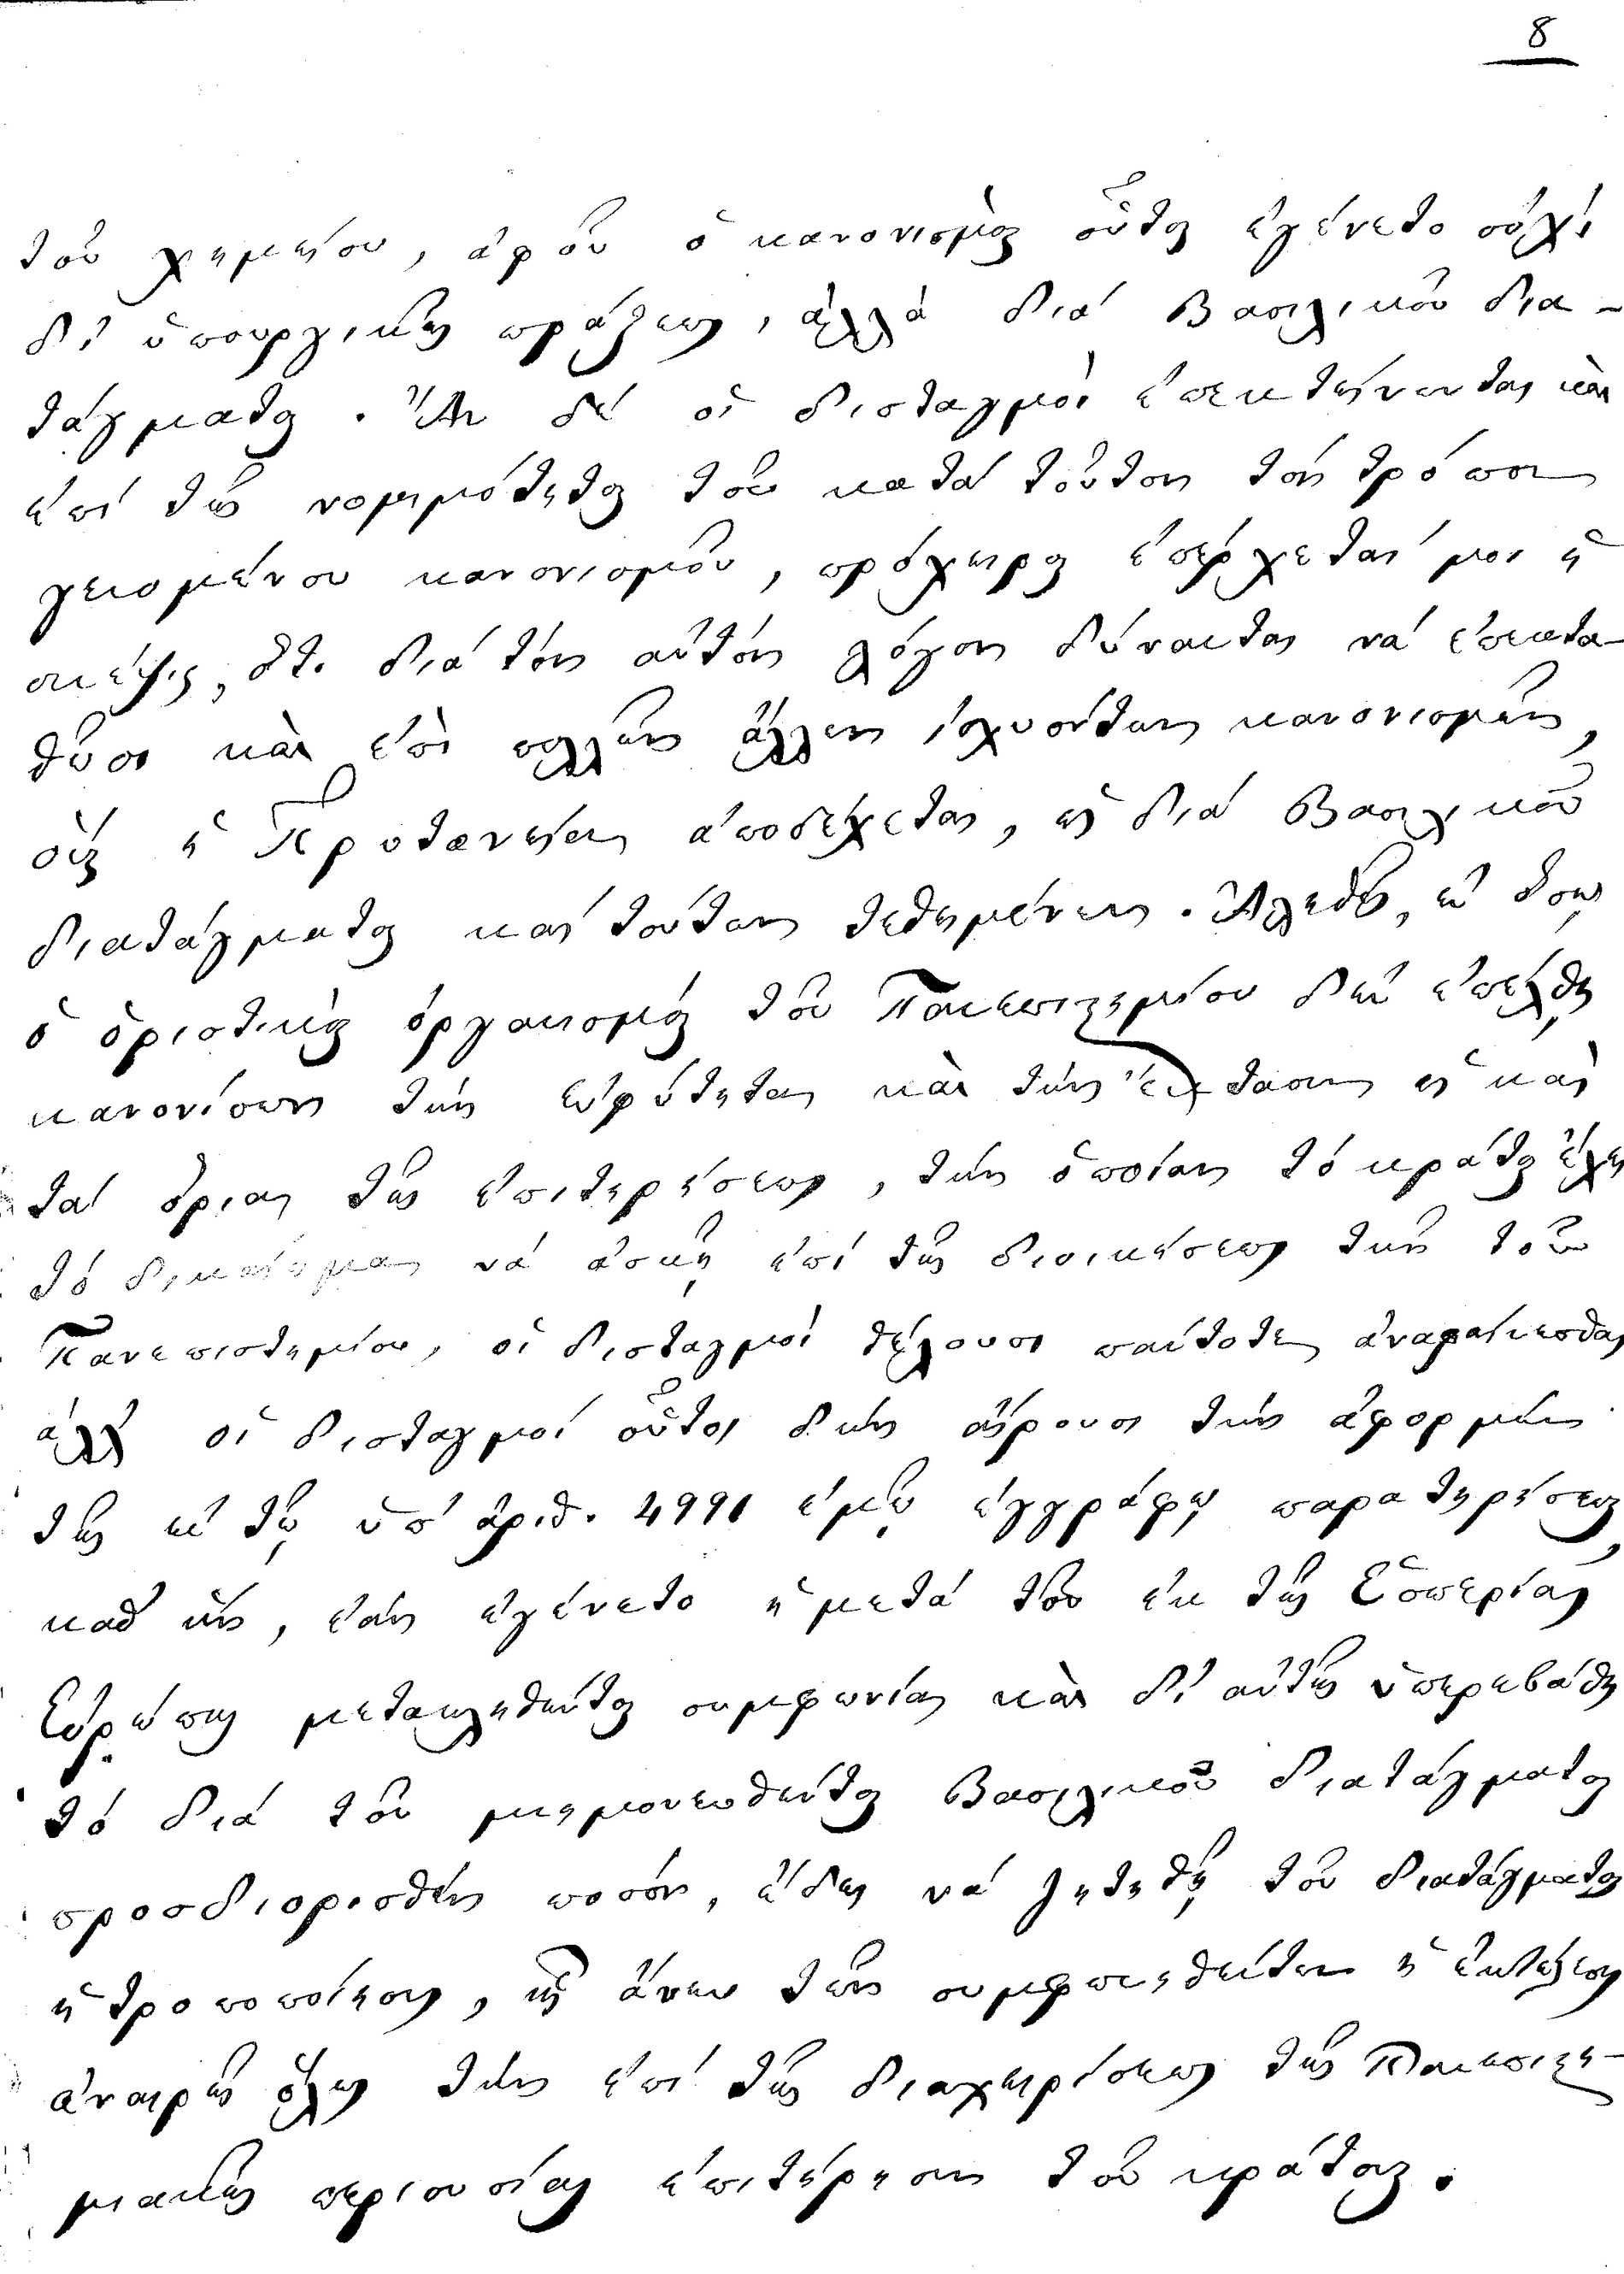 8
τοῦ χημείου, ἀφ' οὗ ὁ κανονισμὸς οὗτος ἐγένετο οὐχὶ
δι' ὑπουργικῆς πράξεως, ἀλλὰ διὰ Βασιλικοῦ δια-
τάγματος. Ἂν δὲ οἱ δισταγμοὶ ἐπεκτείνωνται καὶ
ἐπὶ τῆς νομιμότητος τοῦ κατὰ τοῦτον τὸν τρόπον
γενομένου κανονισμοῦ, πρόχειρος ἐπέρχεταί μοι ἡ
σκέψις, ὅτι διὰ τὸν αὐτὸν λόγον δύνανται νὰ ἐπεκτα-
θῶσι καὶ ἐπὶ πολλῶν ἄλλων ἰσχυόντων κανονισμῶν,
οὓς ἡ Πρυτανεία ἀποδέχεται, εἰ διὰ Βασιλικοῦ
διατάγματος καὶ τούτων τεθειμένων. Ἀληθῶς, ἐν ὅσῳ
ὁ ὁριστικὸς ὀργανισμὸς τοῦ Πανεπιστημίου δὲν ἐπῆλθε
κανονίσων τὴν εὐρύτητα καὶ τὴν ἔκτασιν ἢ καὶ
τὰ ὅρια τῆς ἐπιτηρήσεως, τὴν ὁποίαν τὸ κράτος ἔχει
τὸ δικαίωμα νὰ ἀσκῇ ἐπὶ τῆς διοικήσεως τῆς τοῦ
Πανεπιστημίου, οἱ δισταγμοὶ θέλουσι πάντοτε ἀναφαίνεσθαι
ἀλλ' οἱ δισταγμοὶ οὗτοι δὲν αἴρουσι τὴν ἀφορμὴν
τῆς ἐν τῷ ὑπ' ἀριθ. 4991 ἐμῷ ἐγγράφῳ παρατηρήσεως,
καθ' ἥν, ἐὰν ἐγένετο ἡ μετὰ τοῦ ἐκ τῆς Ἑσπερίας
Εὐρώπης μετακληθέντος συμφωνία καὶ δι' αὐτῆς ὑπερεβάθη
τὸ διὰ τοῦ μνημονευθέντος Βασιλικοῦ διατάγματος
προσδιορισθὲν ποσόν, ἔδει νὰ ζητηθῇ τοῦ διατάγματος
ἡ τροποποίησις, ἧς ἄνευ τῶν συμφωνηθέντων ἡ ἐκτέλεσις
ἀναιρεῖ ὅλην τὴν ἐπὶ τῆς διαχειρίσεως τῆς Πανεπιστη-
μιακῆς περιουσίας ἐπιτήρησιν τοῦ κράτους.